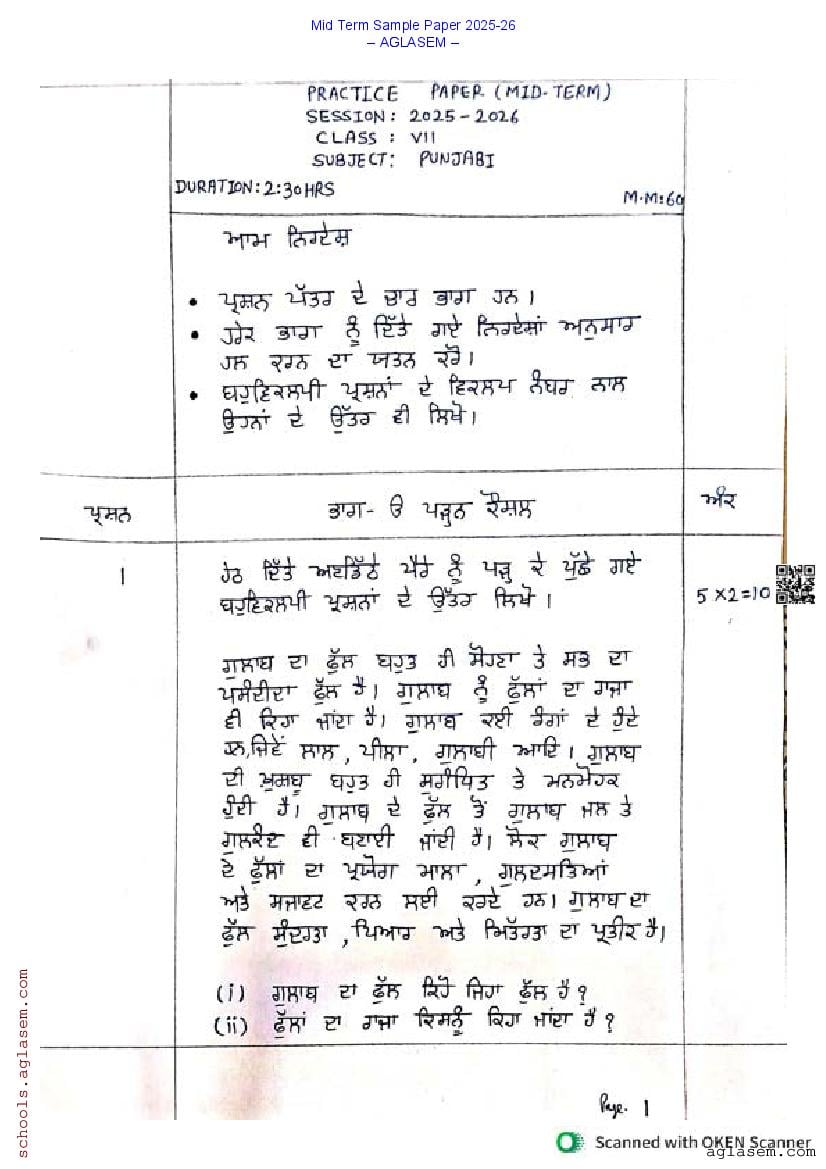 Mid Term Sample Paper 2025-26
– AGLASEM –
PRACTICE PAPER (MID-TERM)
SESSION: 2025-2026
CLASS : VII
SUBJECT: PUNJABI
DURATION: 2:30 HRS
M.M:60
ਆਮ ਨਿਰਦੇਸ਼
• ਪ੍ਰਸ਼ਨ ਪੱਤਰ ਦੇ ਚਾਰ ਭਾਗ ਹਨ।
• ਹਰੇਕ ਭਾਗ ਨੂੰ ਦਿੱਤੇ ਗਏ ਨਿਰਦੇਸ਼ਾਂ ਅਨੁਸਾਰ
ਹਲ ਕਰਨ ਦਾ ਯਤਨ ਕਰੋ।
• ਬਹੁਵਿਕਲਪੀ ਪ੍ਰਸ਼ਨਾਂ ਦੇ ਵਿਕਲਪ ਨੰਬਰ ਨਾਲ
ਉਹਨਾਂ ਦੇ ਉੱਤਰ ਵੀ ਲਿਖੋ।
ਪ੍ਰਸ਼ਨ ਭਾਗ- ੳ ਪੜ੍ਹਨ ਕੌਸ਼ਲ ਅੰਕ
1 ਹੇਠ ਦਿੱਤੇ ਅਣਡਿੱਠੇ ਪੈਰੇ ਨੂੰ ਪੜ੍ਹ ਕੇ ਪੁੱਛੇ ਗਏ
ਬਹੁਵਿਕਲਪੀ ਪ੍ਰਸ਼ਨਾਂ ਦੇ ਉੱਤਰ ਲਿਖੋ। 5 X2=10
ਗੁਲਾਬ ਦਾ ਫੁੱਲ ਬਹੁਤ ਹੀ ਸੋਹਣਾ ਤੇ ਸਭ ਦਾ
ਪਸੰਦੀਦਾ ਫੁੱਲ ਹੈ। ਗੁਲਾਬ ਨੂੰ ਫੁੱਲਾਂ ਦਾ ਰਾਜਾ
ਵੀ ਕਿਹਾ ਜਾਂਦਾ ਹੈ। ਗੁਲਾਬ ਕਈ ਰੰਗਾਂ ਦੇ ਹੁੰਦੇ
ਹਨ,ਜਿਵੇਂ ਲਾਲ, ਪੀਲਾ, ਗੁਲਾਬੀ ਆਦਿ। ਗੁਲਾਬ
ਦੀ ਖੁਸ਼ਬੂ ਬਹੁਤ ਹੀ ਸੁਗੰਧਿਤ ਤੇ ਮਨਮੋਹਕ
ਹੁੰਦੀ ਹੈ। ਗੁਲਾਬ ਦੇ ਫੁੱਲ ਤੋਂ ਗੁਲਾਬ ਜਲ ਤੇ
ਗੁਲਕੰਦ ਵੀ ਬਣਾਈ ਜਾਂਦੀ ਹੈ। ਲੋਕ ਗੁਲਾਬ
ਦੇ ਫੁੱਲਾਂ ਦਾ ਪ੍ਰਯੋਗ ਮਾਲਾ, ਗੁਲਦਸਤਿਆਂ
ਅਤੇ ਸਜਾਵਟ ਕਰਨ ਲਈ ਕਰਦੇ ਹਨ। ਗੁਲਾਬ ਦਾ
ਫੁੱਲ ਸੁੰਦਰਤਾ, ਪਿਆਰ ਅਤੇ ਮਿੱਤਰਤਾ ਦਾ ਪ੍ਰਤੀਕ ਹੈ।
(i) ਗੁਲਾਬ ਦਾ ਫੁੱਲ ਕਿਹੋ ਜਿਹਾ ਫੁੱਲ ਹੈ?
(ii) ਫੁੱਲਾਂ ਦਾ ਰਾਜਾ ਕਿਸਨੂੰ ਕਿਹਾ ਜਾਂਦਾ ਹੈ?
Page. 1
Scanned with OKEN Scanner
aglasem.com
schools.aglasem.com